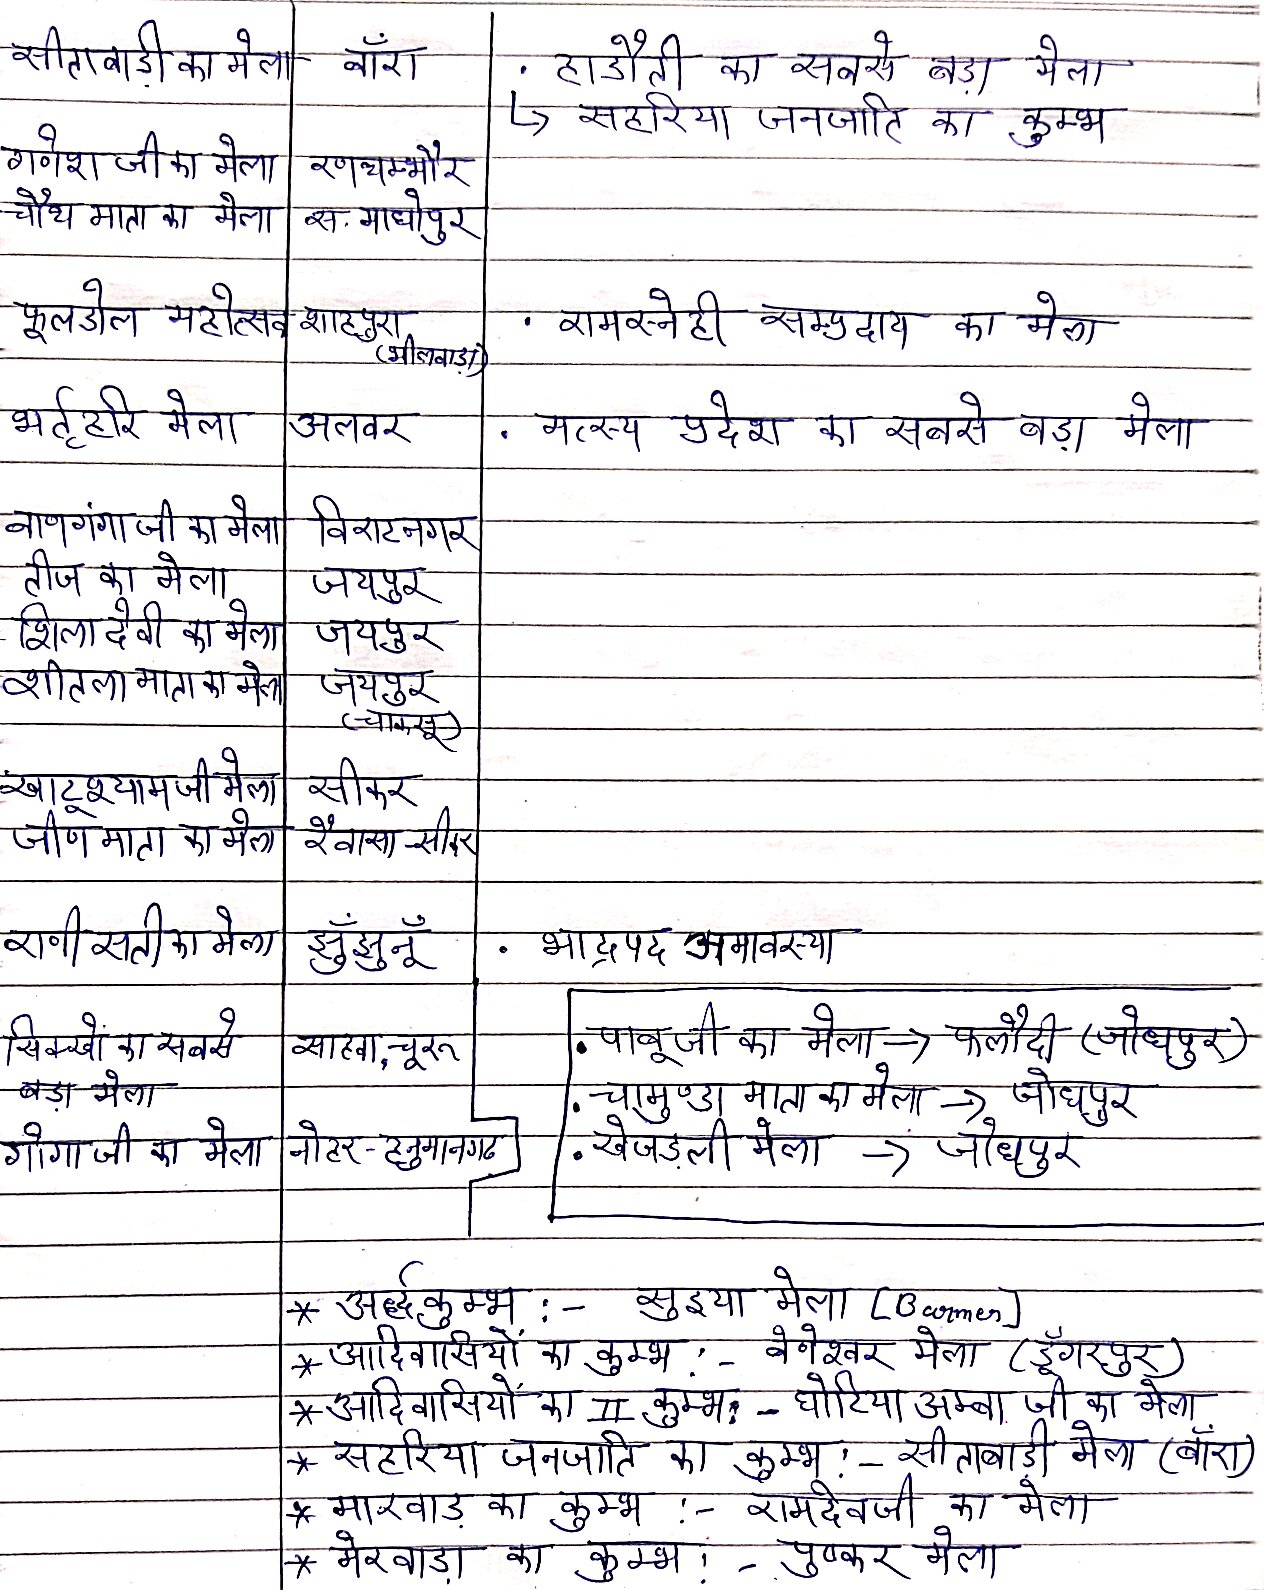 सीताबाड़ी का मेला बाँरा • हाडौती का सबसे बड़ा मेला
↳ सहरिया जनजाति का कुम्भ
गणेश जी का मेला रणथम्भौर
चौथ माता का मेला स. माधोपुर
फूलडोल महोत्सव शाहपुरा • रामस्नेही सम्प्रदाय का मेला
(भीलवाड़ा)
भर्तृहरि मेला अलवर • मत्स्य प्रदेश का सबसे बड़ा मेला
बाणगंगा जी का मेला विराटनगर
तीज का मेला जयपुर
शिला देवी का मेला जयपुर
शीतला माता का मेला जयपुर
(चाकसू)
खाटूश्यामजी मेला सीकर
जीण माता का मेला रैवासा - सीकर
राणी सती का मेला झुँझुनूँ • भाद्रपद अमावस्या
सिक्खों का सबसे साहवा, चूरू • पाबूजी का मेला → फलौदी (जोधपुर)
बड़ा मेला • चामुण्डा माता का मेला → जोधपुर
गोगा जी का मेला नोहर - हनुमानगढ • खेजड़ली मेला → जोधपुर
* अर्द्धकुम्भ :- सुइया मेला [Barmer]
* आदिवासियों का कुम्भ :- बेणेश्वर मेला (डूँगरपुर)
* आदिवासियों का II कुम्भ :- घोटिया अम्बा जी का मेला
* सहरिया जनजाति का कुम्भ :- सीताबाड़ी मेला (बाँरा)
* मारवाड़ का कुम्भ :- रामदेवजी का मेला
* मेरवाड़ा का कुम्भ :- पुष्कर मेला